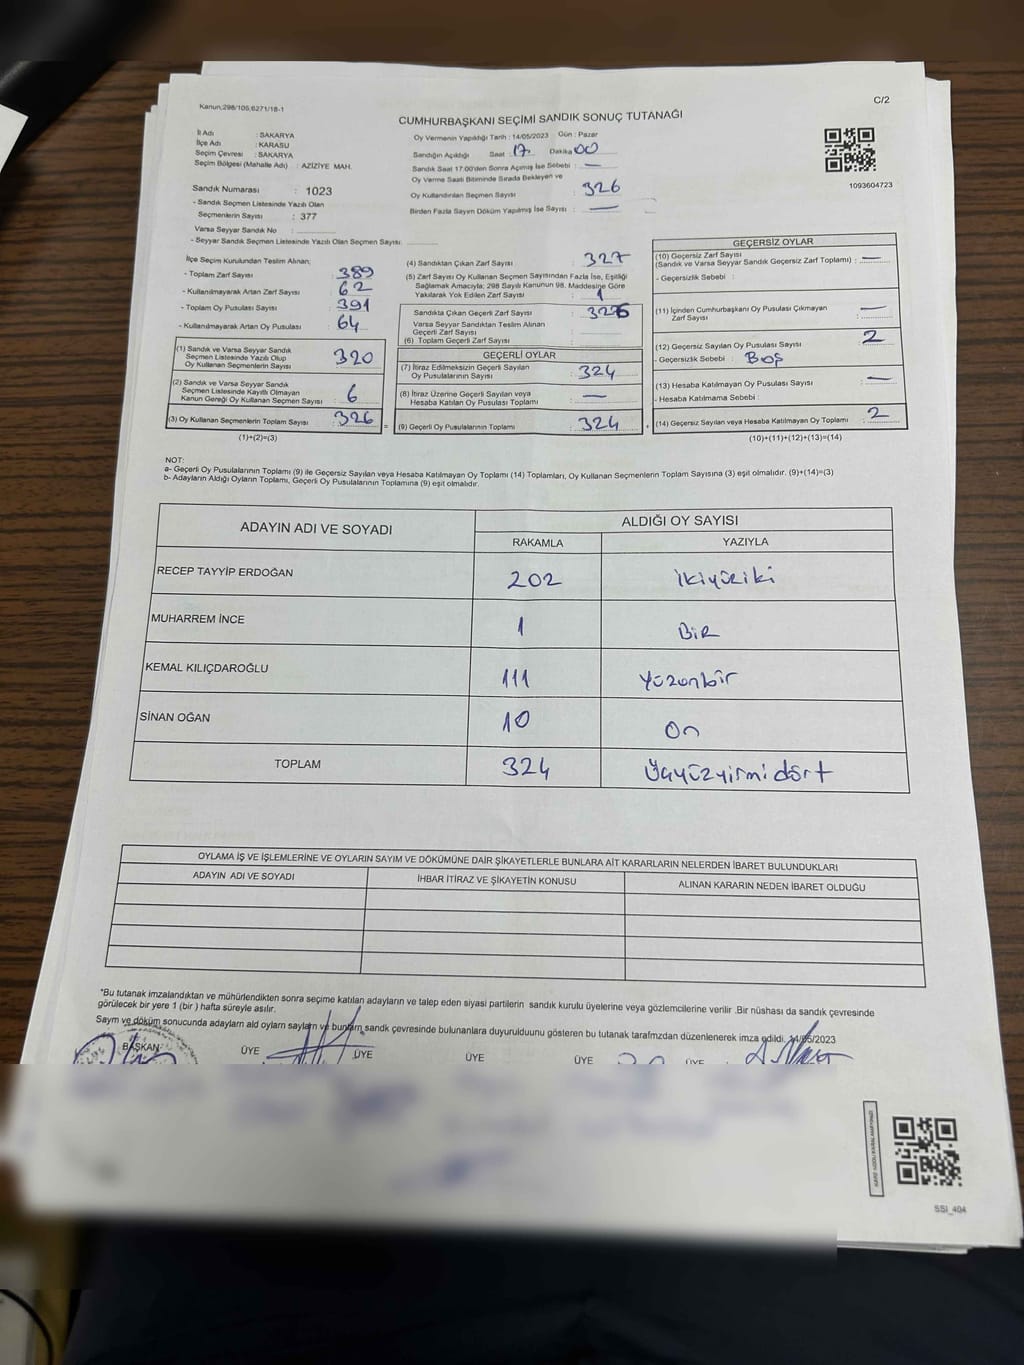 Kanun:298/105,6271/18-1
C/2
CUMHURBAŞKANI SEÇİMİ SANDIK SONUÇ TUTANAĞI
İl Adı : SAKARYA
İlçe Adı : KARASU
Seçim Çevresi : SAKARYA
Seçim Bölgesi (Mahalle Adı) : AZİZİYE MAH.
Sandık Numarası : 1023
- Sandık Seçmen Listesinde Yazılı Olan
Seçmenlerin Sayısı : 377
Varsa Seyyar Sandık No :
- Seyyar Sandık Seçmen Listesinde Yazılı Olan Seçmen Sayısı:
Oy Vermenin Yapıldığı Tarih : 14/05/2023 Gün : Pazar
Sandığın Açıldığı Saat 17 Dakika 00
Sandık Saat 17:00'den Sonra Açılmış İse Sebebi : —
Oy Verme Saati Bitiminde Sırada Bekleyen ve
Oy Kullandırılan Seçmen Sayısı : 326
Birden Fazla Sayım Döküm Yapılmış İse Sayısı : —
1093604723
İlçe Seçim Kurulundan Teslim Alınan;
- Toplam Zarf Sayısı : 389
- Kullanılmayarak Artan Zarf Sayısı : 62
- Toplam Oy Pusulası Sayısı : 391
- Kullanılmayarak Artan Oy Pusulası : 64
(1) Sandık ve Varsa Seyyar Sandık
Seçmen Listesinde Yazılı Olup
Oy Kullanan Seçmenlerin Sayısı : 320
(2) Sandık ve Varsa Seyyar Sandık
Seçmen Listesinde Kayıtlı Olmayan
Kanun Gereği Oy Kullanan Seçmen Sayısı : 6
(3) Oy Kullanan Seçmenlerin Toplam Sayısı : 326
(1)+(2)=(3)
(4) Sandıktan Çıkan Zarf Sayısı : 327
(5) Zarf Sayısı Oy Kullanan Seçmen Sayısından Fazla İse, Eşitliği
Sağlamak Amacıyla; 298 Sayılı Kanunun 98. Maddesine Göre
Yakılarak Yok Edilen Zarf Sayısı : 1
Sandıkta Çıkan Geçerli Zarf Sayısı : 326
Varsa Seyyar Sandıktan Teslim Alınan
Geçerli Zarf Sayısı :
(6) Toplam Geçerli Zarf Sayısı :
GEÇERLİ OYLAR
(7) İtiraz Edilmeksizin Geçerli Sayılan
Oy Pusulalarının Sayısı : 324
(8) İtiraz Üzerine Geçerli Sayılan veya
Hesaba Katılan Oy Pusulası Toplamı : —
(9) Geçerli Oy Pusulalarının Toplamı : 324
GEÇERSİZ OYLAR
(10) Geçersiz Zarf Sayısı
(Sandık ve Varsa Seyyar Sandık Geçersiz Zarf Toplamı) : —
- Geçersizlik Sebebi :
(11) İçinden Cumhurbaşkanı Oy Pusulası Çıkmayan
Zarf Sayısı : —
(12) Geçersiz Sayılan Oy Pusulası Sayısı : 2
- Geçersizlik Sebebi : Boş
(13) Hesaba Katılmayan Oy Pusulası Sayısı : —
- Hesaba Katılmama Sebebi :
(14) Geçersiz Sayılan veya Hesaba Katılmayan Oy Toplamı : 2
(10)+(11)+(12)+(13)=(14)
NOT:
a- Geçerli Oy Pusulalarının Toplamı (9) ile Geçersiz Sayılan veya Hesaba Katılmayan Oy Toplamı (14) Toplamları, Oy Kullanan Seçmenlerin Toplam Sayısına (3) eşit olmalıdır. (9)+(14)=(3)
b- Adayların Aldığı Oyların Toplamı, Geçerli Oy Pusulalarının Toplamına (9) eşit olmalıdır.
ADAYIN ADI VE SOYADI
ALDIĞI OY SAYISI
RAKAMLA YAZIYLA
RECEP TAYYİP ERDOĞAN 202 ikiyüziki
MUHARREM İNCE 1 BİR
KEMAL KILIÇDAROĞLU 111 Yüzonbir
SİNAN OĞAN 10 On
TOPLAM 324 Üçyüzyirmidört
OYLAMA İŞ VE İŞLEMLERİNE VE OYLARIN SAYIM VE DÖKÜMÜNE DAİR ŞİKAYETLERLE BUNLARA AİT KARARLARIN NELERDEN İBARET BULUNDUKLARI
ADAYIN ADI VE SOYADI
İHBAR İTİRAZ VE ŞİKAYETİN KONUSU
ALINAN KARARIN NEDEN İBARET OLDUĞU
*Bu tutanak imzalandıktan ve mühürlendikten sonra seçime katılan adayların ve talep eden siyasi partilerin sandık kurulu üyelerine veya gözlemcilerine verilir .Bir nüshası da sandık çevresinde
görülecek bir yere 1 (bir ) hafta süreyle asılır.
Sayım ve döküm sonucunda adayların aldı oyların sayıları ve bunların sandık çevresinde bulunanlara duyurulduunu gösteren bu tutanak tarafımzdan düzenlenerek imza edildi. 14/05/2023
BAŞKAN ÜYE ÜYE ÜYE ÜYE ÜYE
SSI_404